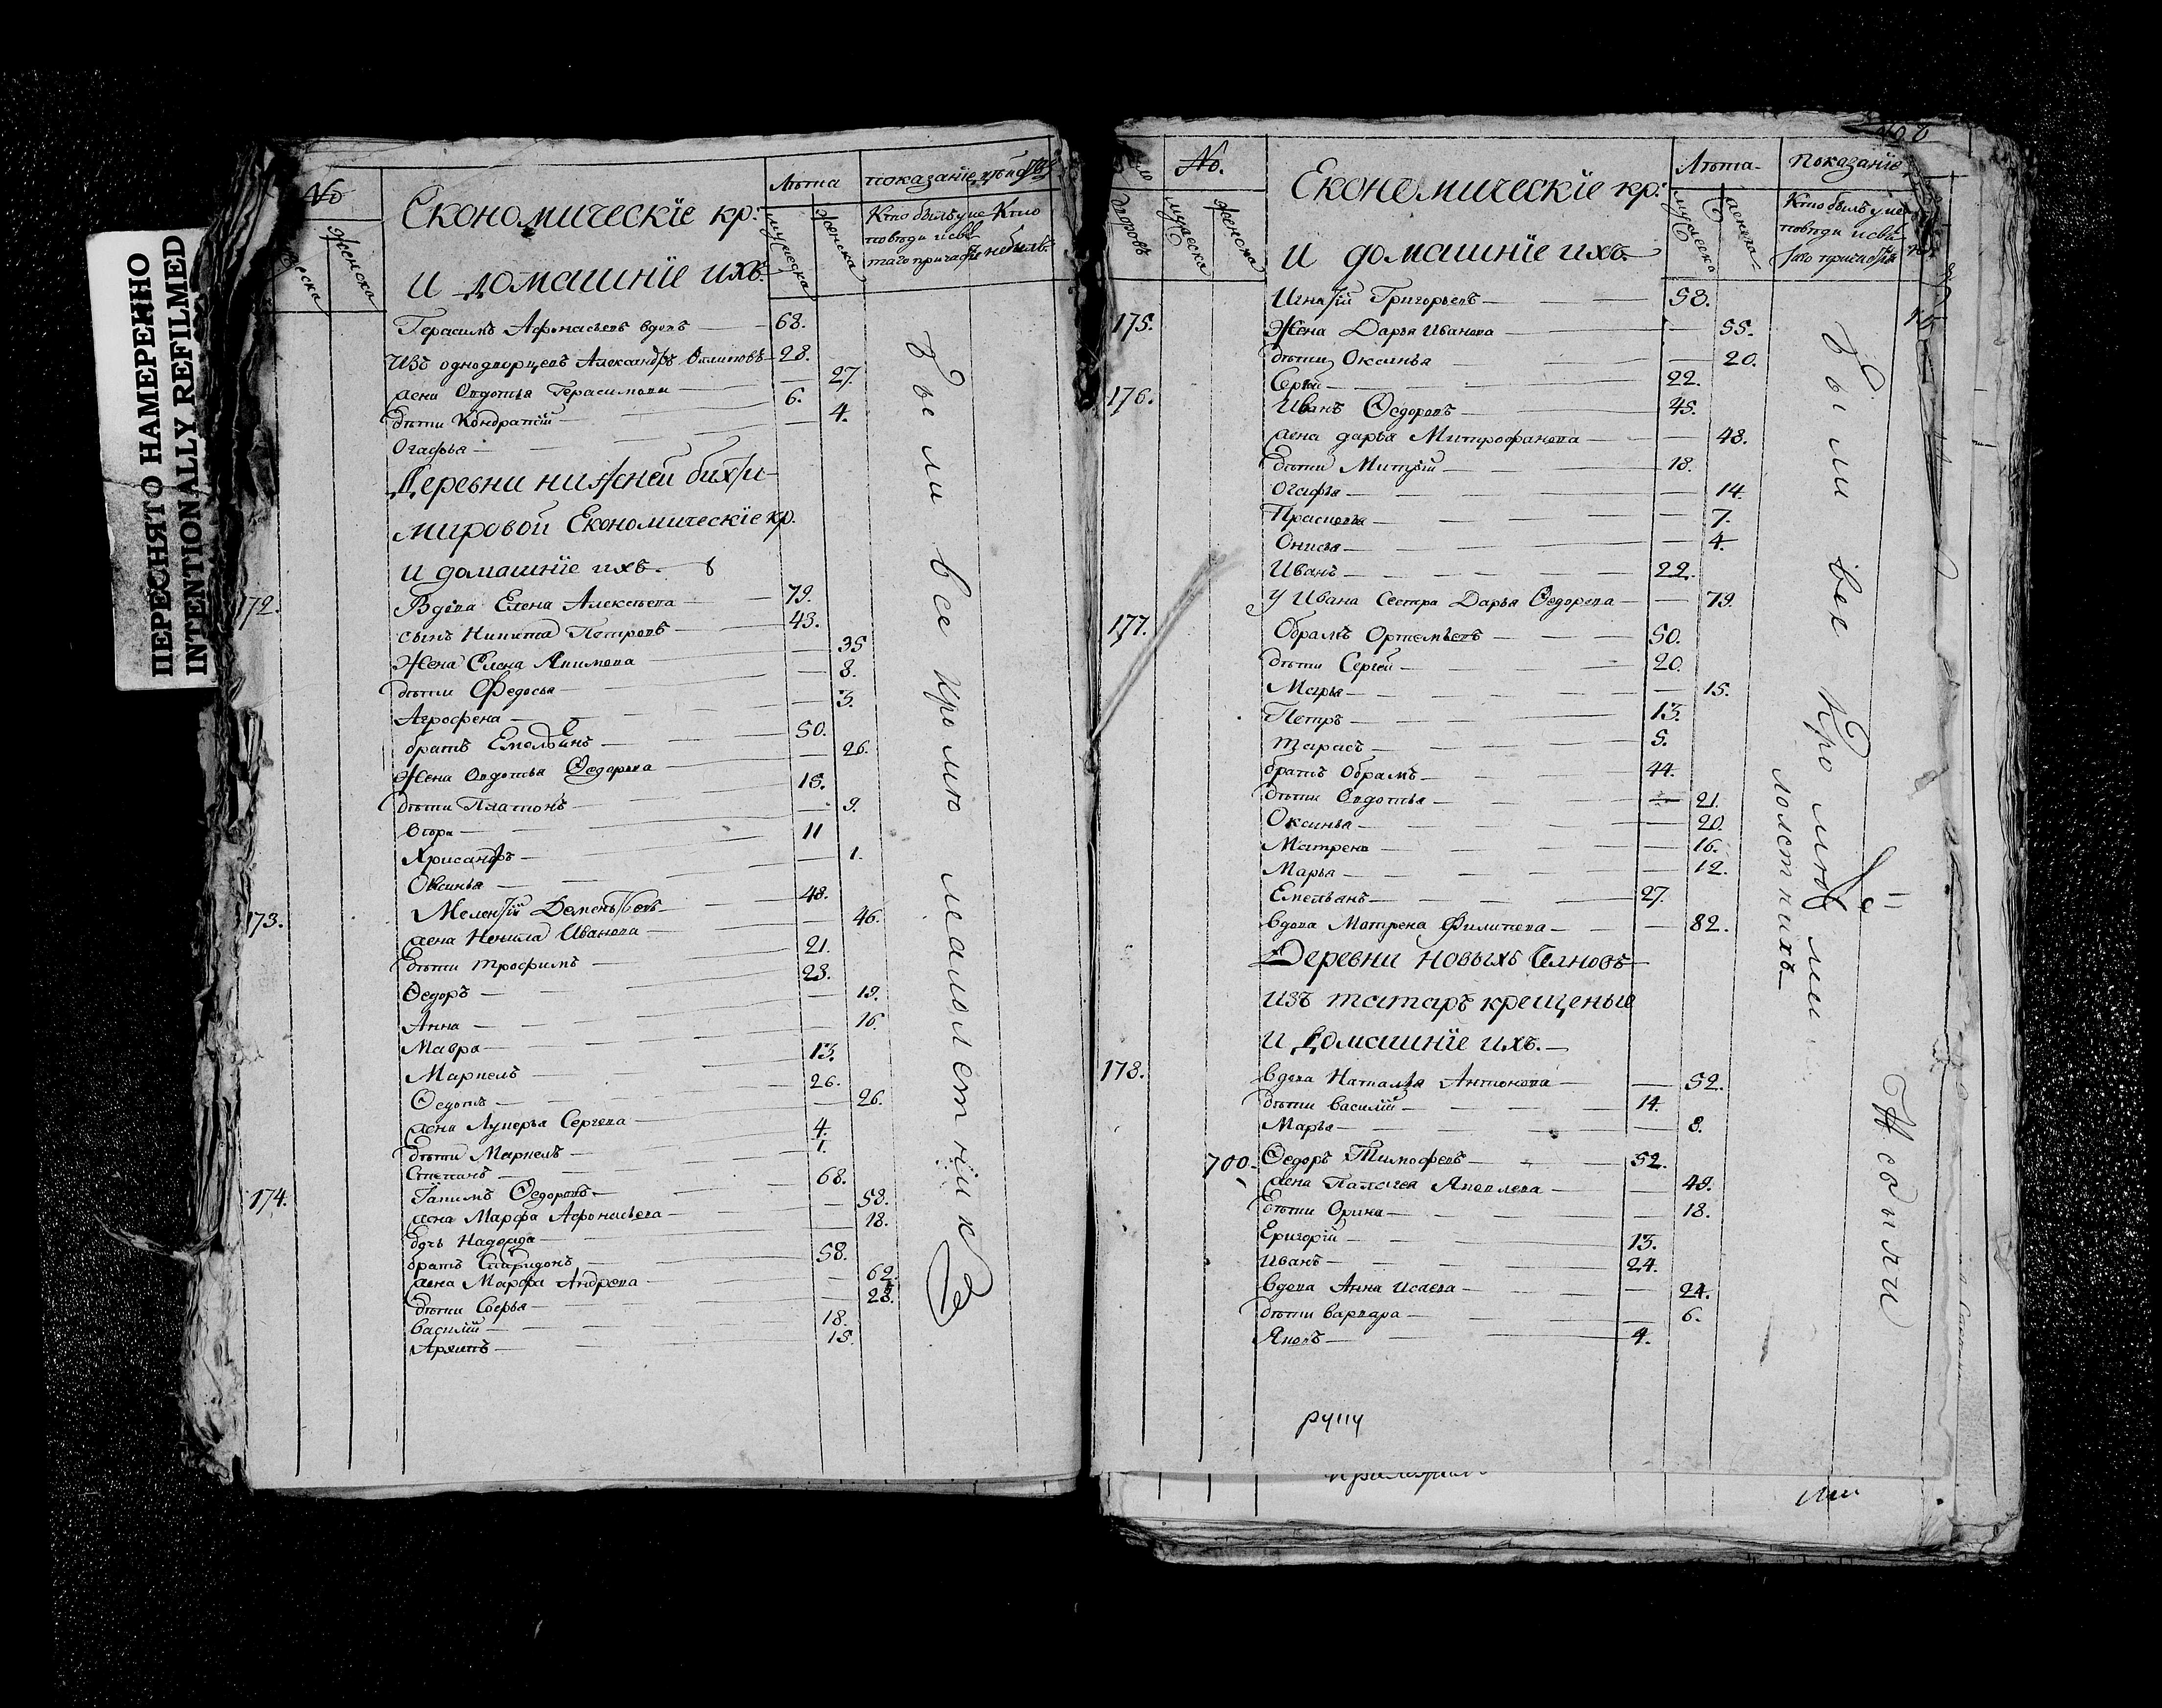 ПЕРЕСНЯТО НАМЕРЕННО
INTENTIONALLY REFILMED
№
женска
Економическїе кр:
и домашнїе ихъ.
Лѣта
мужеска
женска
показанїе
Кто былъ у ис
повѣди и свѧ
таго причас
Кто
не былъ
Герасимъ Афонасьевъ вдовъ 68.
Изъ однодворцевъ Александръ 28.
жена Овдотья Герасимова 27.
дѣти Кондратїй 6.
Огафья 4.
Деревни нижней
мировой Економическїе кр.
и домашнїе ихъ.
172. Вдова Елена Алексѣева 79.
сынъ Никита Петровъ 43.
Жена Елена Якимова 35
дѣти Федосья 8.
Агрофена 3.
братъ Емельянъ 50.
Жена Овдотья Ѳедорова 26.
дѣти Платонъ 15.
9.
Хрисанфъ 11
Оксинья 1.
173. Мелентїй 48.
жена Ненила Иванова 46.
дѣти Трофимъ 21.
Ѳедоръ 23.
Анна 19.
Мавра 16.
Маркелъ 13.
Ѳедотъ 26.
жена Лукерья Сергева 26.
дѣти Маркелъ 4.
Степанъ 1.
174. Ѳедоровъ 68.
жена Марфа Афонасьева 58.
дочь Надежда 18.
братъ Спиридонъ 58.
жена Марфа Андреева 62.
дѣти Софья 28.
Василїй 18.
Архипъ 15.
были все кромѣ малолетних
№.
дворовъ
мужеска
женска
Економическїе кр:
и домашнїе ихъ.
Лѣта
мужеска
женска
Показанїе
Кто былъ у ис
повѣди и свѧ
таго причастїя
175. Игнатїй Григорьевъ 58.
Жена Дарья Иванова 55.
дѣти Оксинья 20.
Сергѣй 22.
176. Иванъ Ѳедоровъ 45.
жена дарья Митрофанова 48.
дѣти Митрїй 18.
Огафья 14.
Прасковья 7.
Онисья 4.
Иванъ 22.
У Ивана Сестра Дарья Ѳедорова 79.
177. Обрамъ Ортемьевъ 50.
дѣти Сергей 20.
Марья 15.
Петръ 13.
Тарасъ 5.
братъ Обрамъ 44.
дѣти Овдотья 21.
Оксинья 20.
Матрена 16.
Марья 12.
Емельянъ 27.
вдова Матрена Филипова 82.
Деревни Новыхъ
изъ татаръ крещеные
и домашнїе ихъ.
178. вдова Наталья Антонова 52.
дѣти Василїй 14.
Марья 8.
700. Ѳедоръ Тимофевъ 52.
жена Палагея Яковлева 49.
дѣти Орина 18.
Григорїй 13.
Иванъ 24.
вдова Анна Исаева 24.
дѣти варвара 6.
Яковъ 4.
были все кромѣ